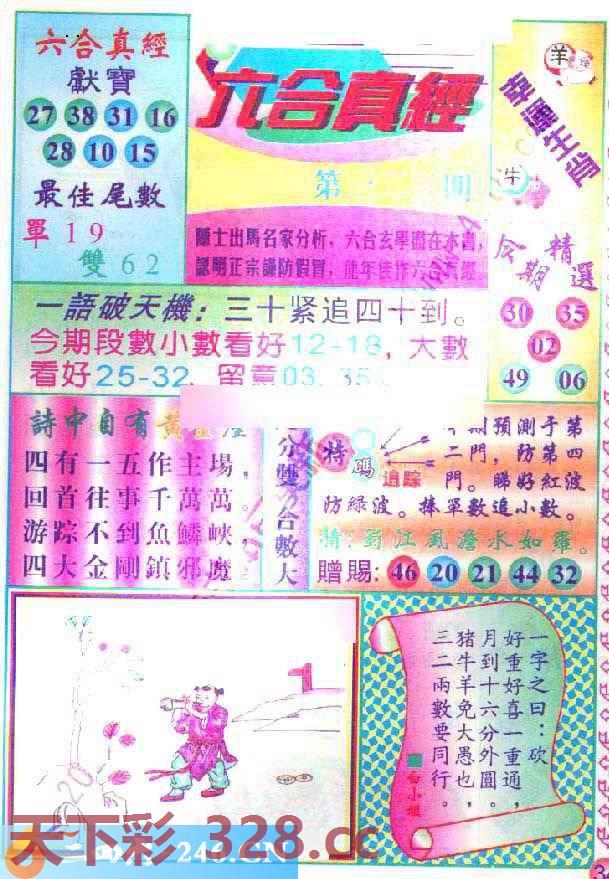 六合真經
獻寶
27 38 31 16
28 10 15
最佳尾數
單19
雙62
六合真經
第 期
隱士出馬名家分析，六合玄學盡在本書，
認明正宗謹防假冒，
羊
幸運生肖
牛
今期精選
30 35
02
49 06
一語破天機：三十紧追四十到。
今期段數小數看好12-18，大數
看好25-32，留意03，35
詩中自有黃
四有一五作主場，
回首往事千萬萬。
游踪不到魚鱗峽，
四大金剛鎮邪魔。
分雙合數大
特碼追踪
期預測于第
二門，防第四
門。睇好紅波
防綠波。捧單數追小數。
贈賜：46 20 21 44 32
一字之曰：砍
好重好喜一重通，
月到十六分外圓，
猪牛羊兔大愚也，
三二兩數要同行。
天下彩 328.cc
246.CN